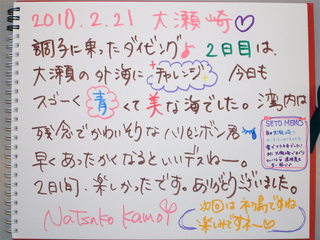 2010.2.21 大瀬崎
調子に乗ったダイビング 2日目は、
大瀬の外海にチャレンジ 今日も
スゴーく青くて美な海でした。湾内は
残念でかわいそうなハリセンボン君
早くあったかくなるといいデスねー。
2日間、楽しかったです。ありがとうございました。
Natsuko Kamo
次回は初島ですね
楽しみですネー
SETO MEMO